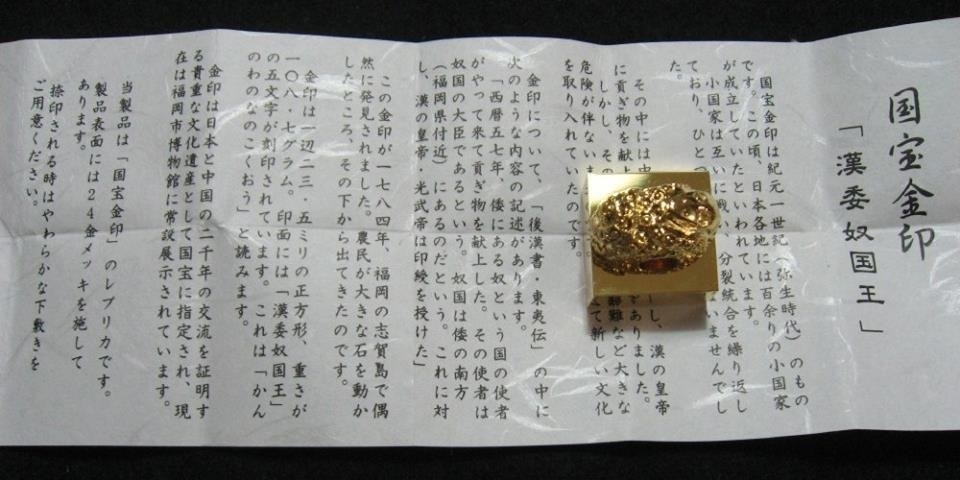 国宝金印
「漢委奴国王」
国宝金印は紀元一世紀(弥生時代)のもの
です。この頃、日本各地には百余りの小国家
が成立していたといわれています。
小国家は互いに戦い、分裂統合を繰り返し
ており、ひとつ いませんでし
た。
その中には中 し、漢の皇帝
に貢ぎ物を献上 ありました。
しかし、その 難など大きな
危険が伴ないま て新しい文化
を取り入れていたのです。
金印について、「後漢書・東夷伝」の中に
次のような内容の記述があります。
「西暦五七年、倭にある奴という国の使者
がやって来て貢ぎ物を献上した。その使者は
奴国の大臣であるという。奴国は倭の南方
(福岡県付近)にあるのだという。これに対
し、漢の皇帝・光武帝は印綬を授けた」
この金印が一七八四年、福岡の志賀島で偶
然に発見されました。農民が大きな石を動か
したところ、その下から出てきたのです。
金印は一辺二三・五ミリの正方形、重さが
一〇八・七グラム。印面には「漢委奴国王」
の五文字が刻印されています。これは「かん
のわのなのこくおう」と読みます。
金印は日本と中国の二千年の交流を証明す
る貴重な文化遺産として国宝に指定され、現
在は福岡市博物館に常設展示されています。
当製品は「国宝金印」のレプリカです。
製品表面には24金メッキを施して
あります。
捺印される時はやわらかな下敷きを
ご用意ください。